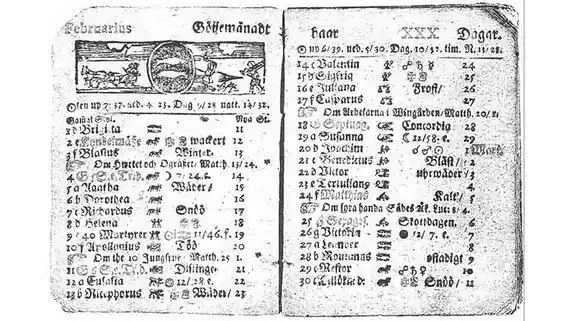 Februarius Göjemånadt
Solen up 7/37. ned. 4 23. Dag 9/28 natt. 14/32.
Gamal Styl. Nya St.
1 d Brigita 11
2 e Kyndelmäss wackert 12
3 f Blasius Winter. 13
Om Hwetet och Ogräset, Matth. 13/24.
4 G 5 e. Tr. d. 7/24. f. 14
5 a Agatha Wäder/ 15
6 b Dorothea 16
7 c Richardus Snöö 17
8 d Helena 18
9 e 40 Martyrer 11/46. f. 19
10 f Apollonius Töö 20
Om the 10 Jungfrur Matth. 25 1.
11 G 6 e. Tr. d. Distinge 21
12 a Eulalia 12/28 e. 22
13 b Nicephorus Wäder/ 23
haar XXX Dagar.
up 6/39. ned. 5/30. Dag. 10/52. tim. N. 13/28.
14 c Valentin 24
15 d Sigfrig 25
16 e Juliana Frost/ 26
17 f Casparus 27
Om Arbetarna i Wingården/Matth. 20/1.
18 G Septuag. Concordig 28
19 a Susanna 12/58. e. 29
20 b Joachim 1 Mart.
21 c Benedictus Blåst/ 2
22 d Victor uhrwäder/ 3
23 e Tertullianz 4
24 f Matthias Kalt/ 5
Om fyra handa Sädes åk. Luc. 8/4.
25 G Sexages. Skottdagen. 6
26 g Victorin 12/7. e. 7
27 a Leander 8
28 b Romanus ostadigt 9
29 c Nestor 10
30 Snöö/ 11